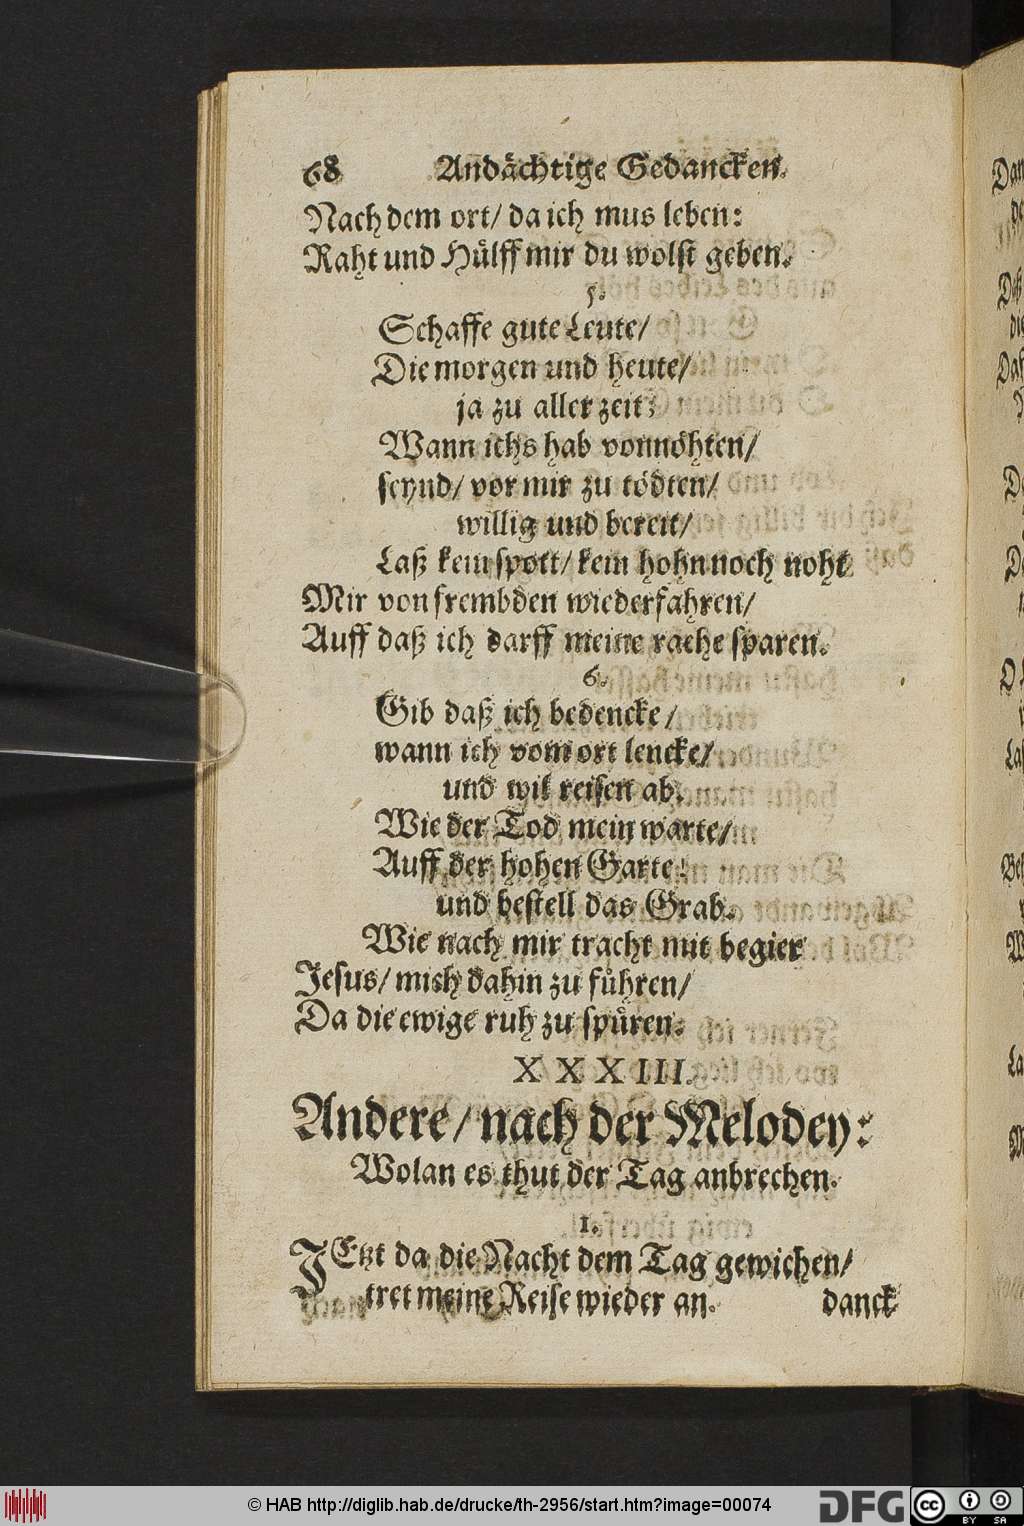 68 Andächtige Gedancken.
Nach dem ort/ da ich mus leben:
Raht und Hülff mir du wolst geben.
5.
Schaffe gute Leute/
Die morgen und heute/
ja zu aller zeit:
Wann ichs hab vonnöhten/
seynd/ vor mir zu tödten/
willig und bereit/
Laß kein spott/ kein hohn noch noht
Mir von frembden wiederfahren/
Auff daß ich darff meine rache sparen.
6.
Gib daß ich bedencke/
wann ich vom ort lencke/
und wil reisen ab.
Wie der Tod mein warte/
Auff der hohen Garte:
und bestell das Grab.
Wie nach mir tracht mit begier
Jesus/ mich dahin zu führen/
Da die ewige ruh zu spüren.
XXXIII.
Andere/ nach der Melodey:
Wolan es thut der Tag anbrechen.
1.
JEtzt da die Nacht dem Tag gewichen/
tret meine Reise wieder an. danck
© HAB http://diglib.hab.de/drucke/th-2956/start.htm?image=00074
DFG
cc
BY SA